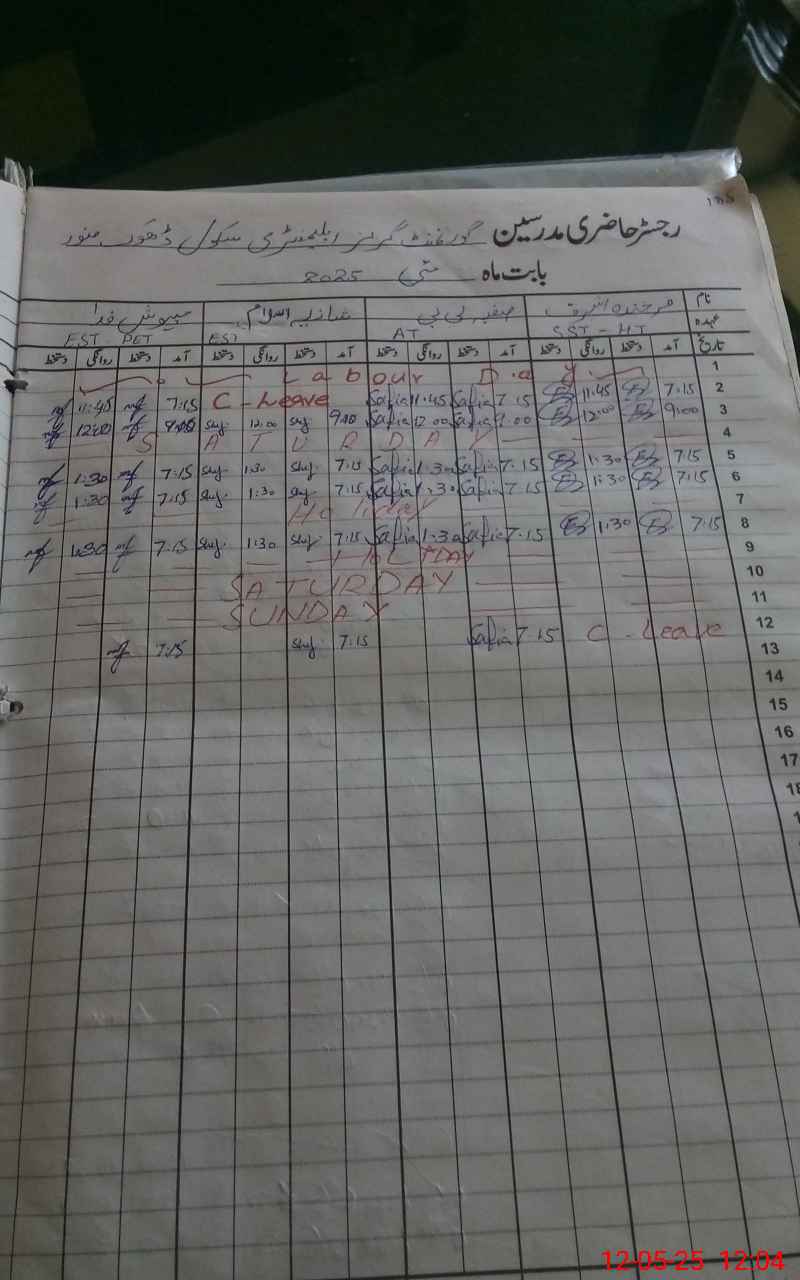 رجسٹر حاضری مدرسین گورنمنٹ گرلز ایلیمنٹری سکول ڈھوک منور
بابت ماہ مئی 2025
نام فرخندہ اشرف صفیہ بی بی شازیہ اسلام مہوش فدا
عہدہ SST - HT AT EST EST - PET
تاریخ آمد دستخط روانگی دستخط آمد دستخط روانگی دستخط آمد دستخط روانگی دستخط آمد دستخط روانگی دستخط
1 Labour Day
2 7:15 11:45 7.15 Safia 11.45 Safia C - Leave 7:15 11:45
3 9:00 12:00 9.00 Safia 12.00 Safia 9:00 12:00 9:00 12:00
4 SATURDAY
5 7:15 1:30 7.15 Safia 1.30 Safia 7:15 1:30 7:15 1:30
6 7:15 1:30 7.15 Safia 1.30 Safia 7:15 1:30 7:15 1:30
7 Holiday
8 7:15 1:30 7.15 Safia 1.30 Safia 7:15 1:30 7:15 1:30
9 HOLIDAY
10 SATURDAY
11 SUNDAY
12 C - Leave 7.15 Safia 7:15 7:15
13
14
15
16
17
18
12-05-25 12:04